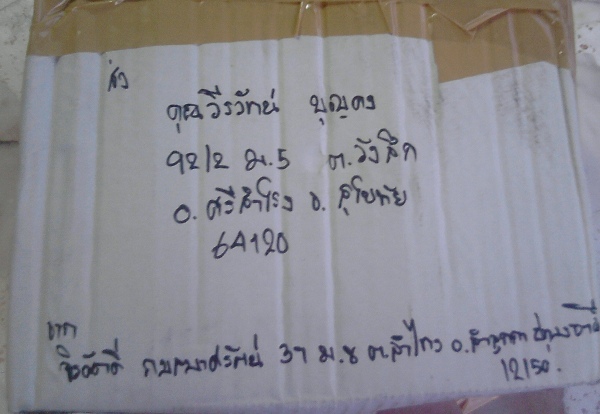 ส่ง
คุณวีรวัฒน์ บุญคง
92/2 ม.5 ต.วังลึก
อ. ศรีสำโรง จ. สุโขทัย
64120
จาก
37 ม.8 ต.ลำไทร อ.ลำลูกกา ปทุมธานี
12150.